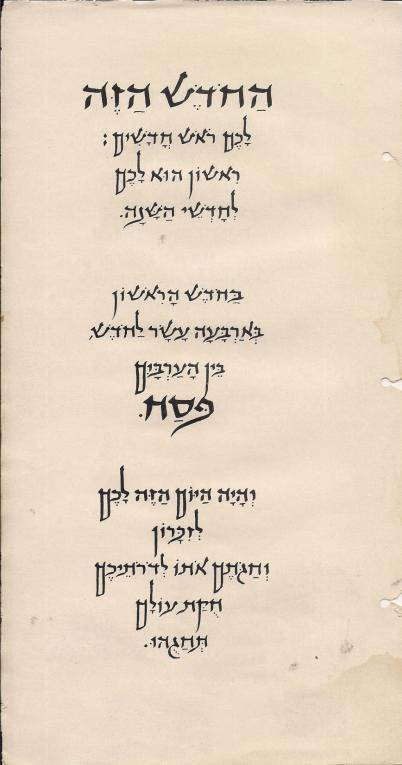 הַחֹדֶשׁ הַזֶּה
לָכֶם רֹאשׁ חֳדָשִׁים:
רִאשׁוֹן הוּא לָכֶם
לְחָדְשֵׁי הַשָּׁנָה.
בַּחֹדֶשׁ הָרִאשׁוֹן
בְּאַרְבָּעָה עָשָׂר לַחֹדֶשׁ,
בֵּין הָעַרְבָּיִם
פֶּסַח.
וְהָיָה הַיּוֹם הַזֶּה לָכֶם
לְזִכָּרוֹן
וְחַגֹּתֶם אֹתוֹ לְדֹרֹתֵיכֶם
חֻקַּת עוֹלָם
תְּחָגֻּהוּ.